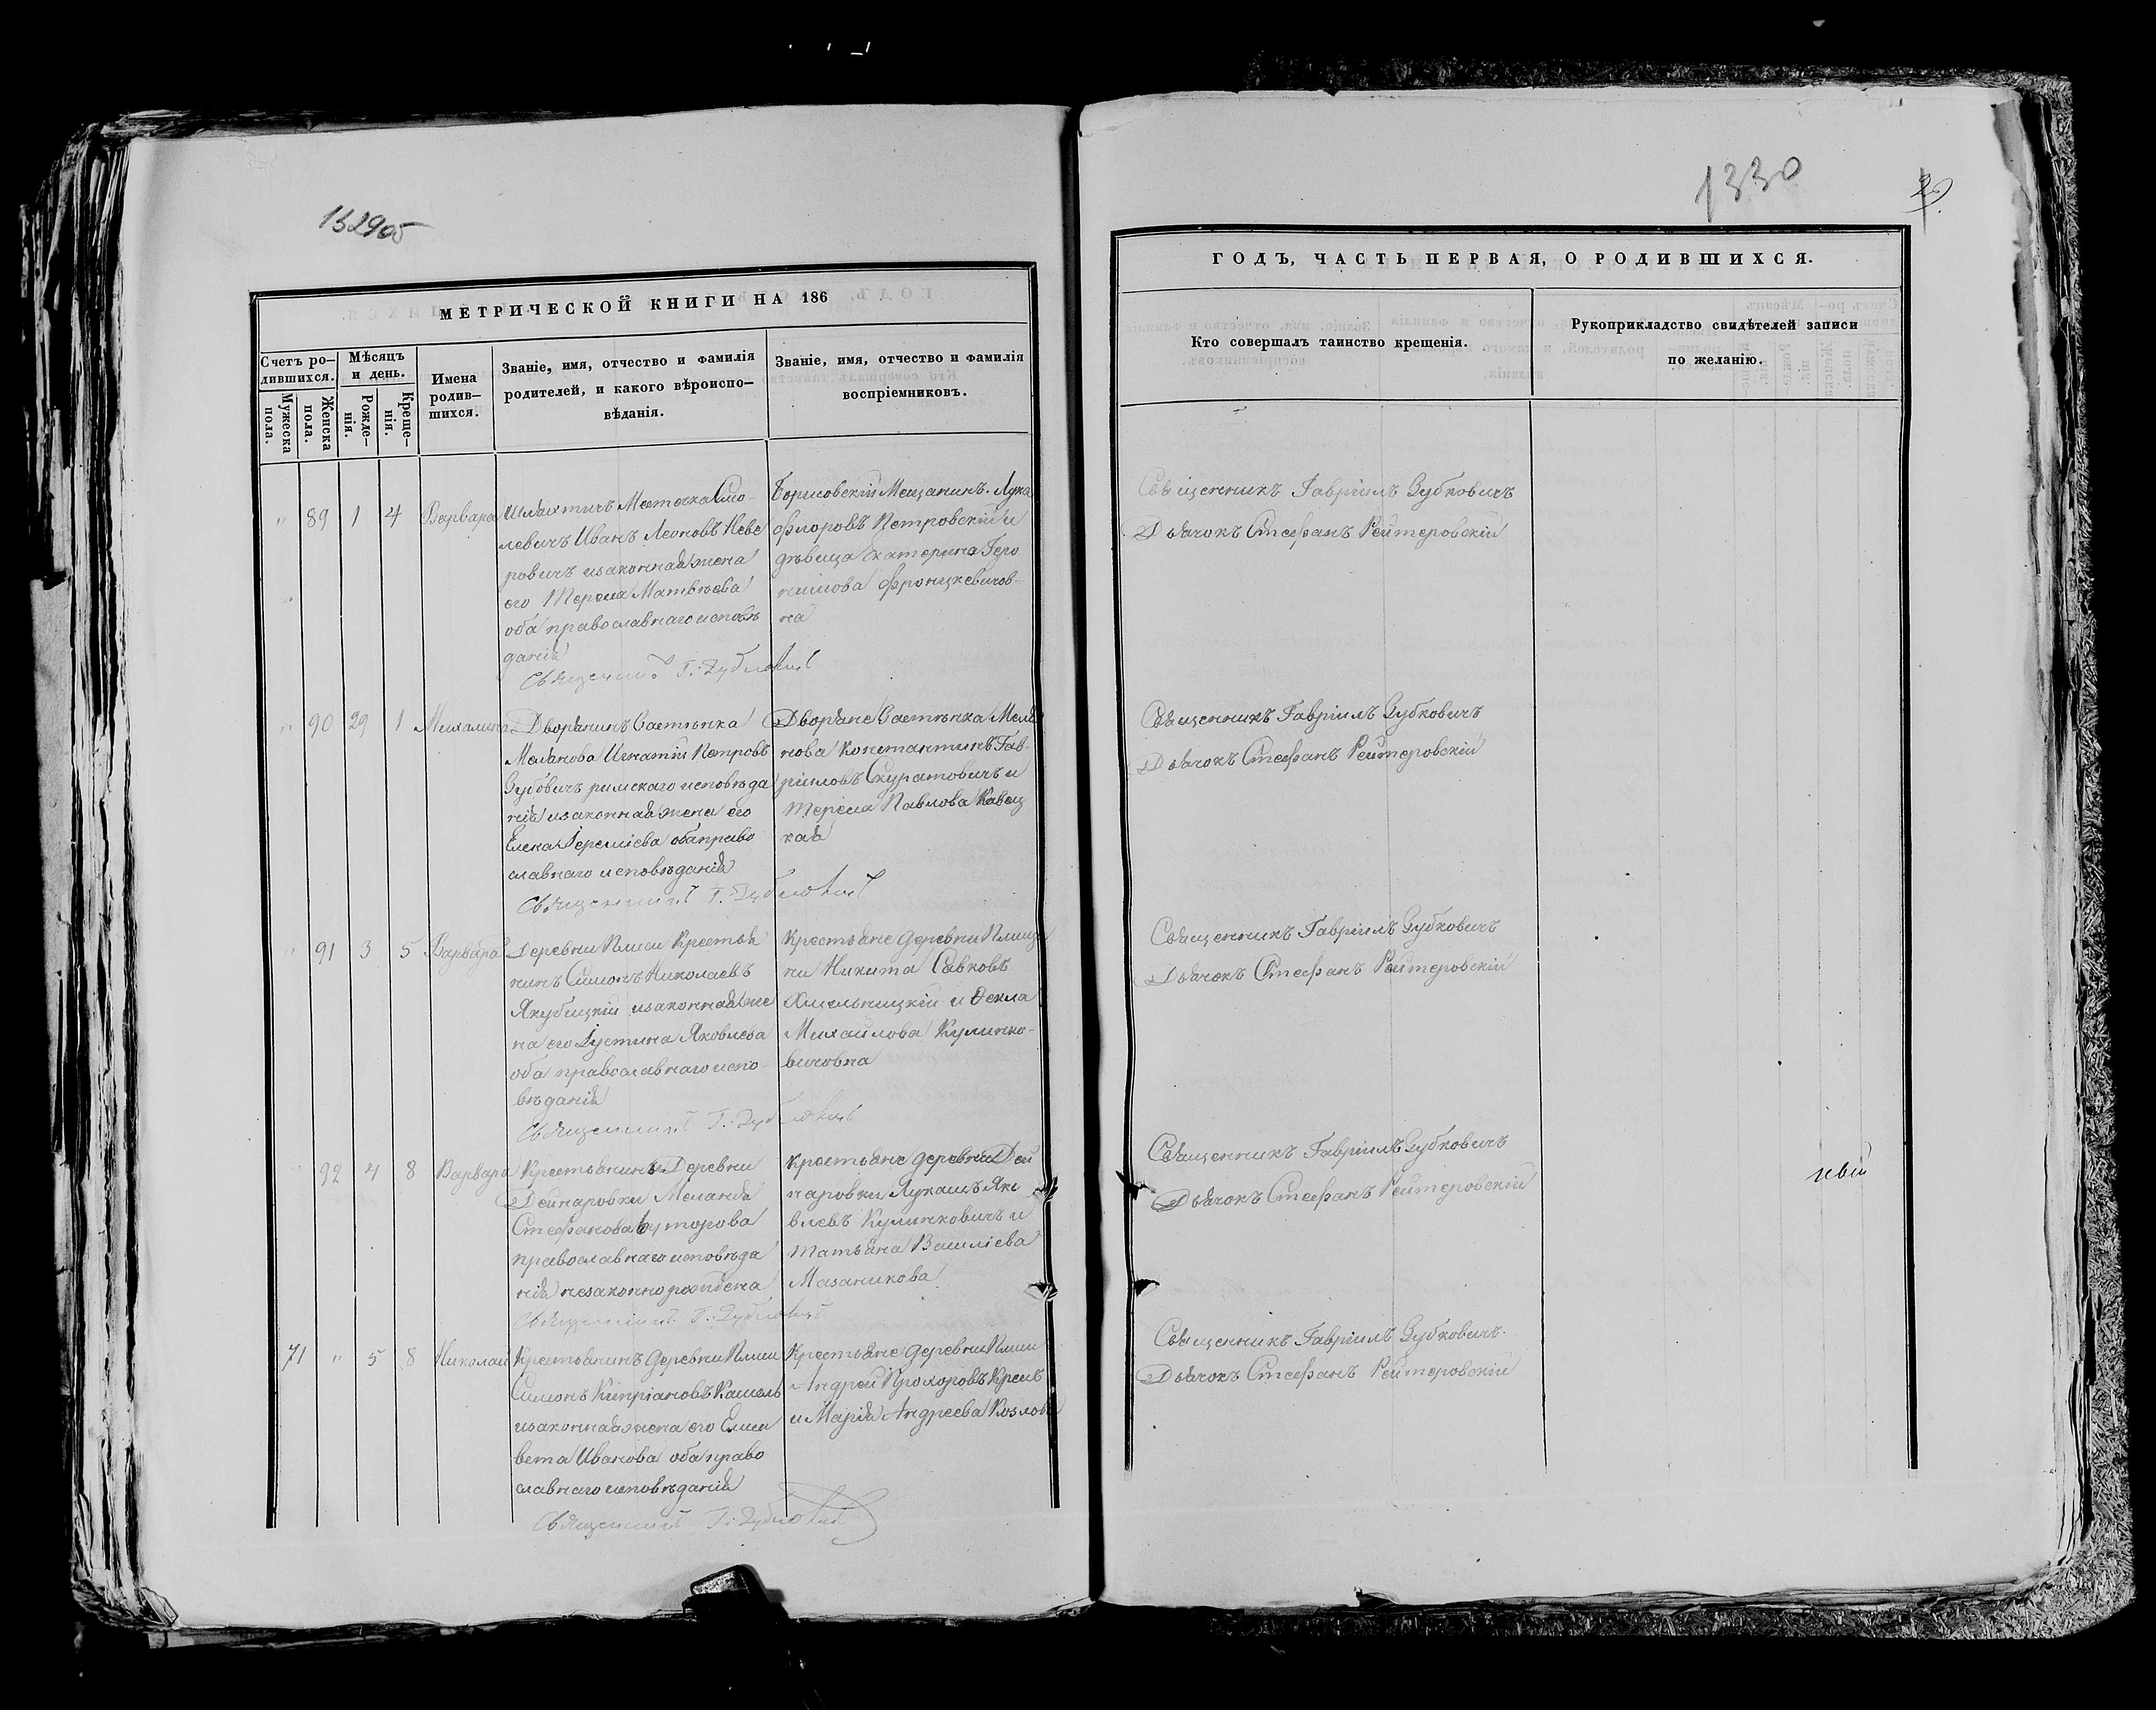 1329об
МЕТРИЧЕСКОЙ КНИГИ НА 186
Счетъ ро-
дившихся.
Мужеска
пола.
Женска
пола.
Мѣсяцъ
и день.
Рожде-
нія.
Креще-
нія.
Имена
родив-
шихся.
Званіе, имя, отчество и фамилія
родителей, и какого вѣроиспо-
вѣданія.
Званіе, имя, отчество и фамилія
воспріемниковъ.
" 89 1 4 Варвара
Шляхтичъ Местечка Смо-
левичъ Иванъ Леоновъ Неве
ровичъ изаконная жена
его Тереса Матвѣева
оба православнаго исповѣ
данія
Священникъ Г. Зубковичъ
Борисовскій Мещанинъ Лука
Флоровъ Петровскій и
дѣвица Екатерина Геро
нимова Фронцкевичов-
на
" 90 29 1 Михалина
Дворянинъ Застѣнка
Меланова Игнатій Петровъ
Зубовичъ римскаго исповѣда
нія изаконная жена его
Елена Іереміева оба право
славнаго исповѣданія
Священникъ Г. Зубковичъ
Дворяне Застѣнка Мела
нова Константинъ Гав-
ріиловъ Скуратовичъ и
Тереса Павлова Кавец
кая
" 91 3 5 Варвара
Деревни Плиси Крестья
нинъ Симонъ Николаевъ
Якубицкій изаконная же
на его Іустина Яковлева
оба православнаго испо-
вѣданія
Священникъ Г. Зубковичъ
Крестьяне деревни
ни Никита Савковъ
Хмельницкій и Ѳекла
Михайлова Кулинко-
вичовна
" 92 4 8 Варвара
Крестьянинъ Деревни
Дейнаровки Меланія
Стефанова Буторова
православнаго исповѣда
нія незаконно рождена
Священникъ Г. Зубковичъ
Крестьяне деревни Дей
наровки Лукашъ Яко
влевъ Кулинковичъ и
Татьяна Василіева
Мазаникова
71 " 5 8 Николай
Крестьянинъ деревни Плиси
Симонъ Кипріановъ Кашель
изаконная жена его Елиса
вета Иванова оба право
славнаго исповѣданія
Священникъ Г. Зубковичъ
Крестьяне деревни Плиси
Андрей Прохоровъ
и Марія Андреева Козлова
1330
ГОДЪ, ЧАСТЬ ПЕРВАЯ, О РОДИВШИХСЯ.
Кто совершалъ таинство крещенія.
Рукоприкладство свидѣтелей записи
по желанію.
Священникъ Гавріилъ Зубковичъ
Дьячокъ Стефанъ Рейтеровскій
Священникъ Гавріилъ Зубковичъ
Дьячокъ Стефанъ Рейтеровскій
Священникъ Гавріилъ Зубковичъ
Дьячокъ Стефанъ Рейтеровскій
Священникъ Гавріилъ Зубковичъ
Дьячокъ Стефанъ Рейтеровскій
Священникъ Гавріилъ Зубковичъ
Дьячокъ Стефанъ Рейтеровскій